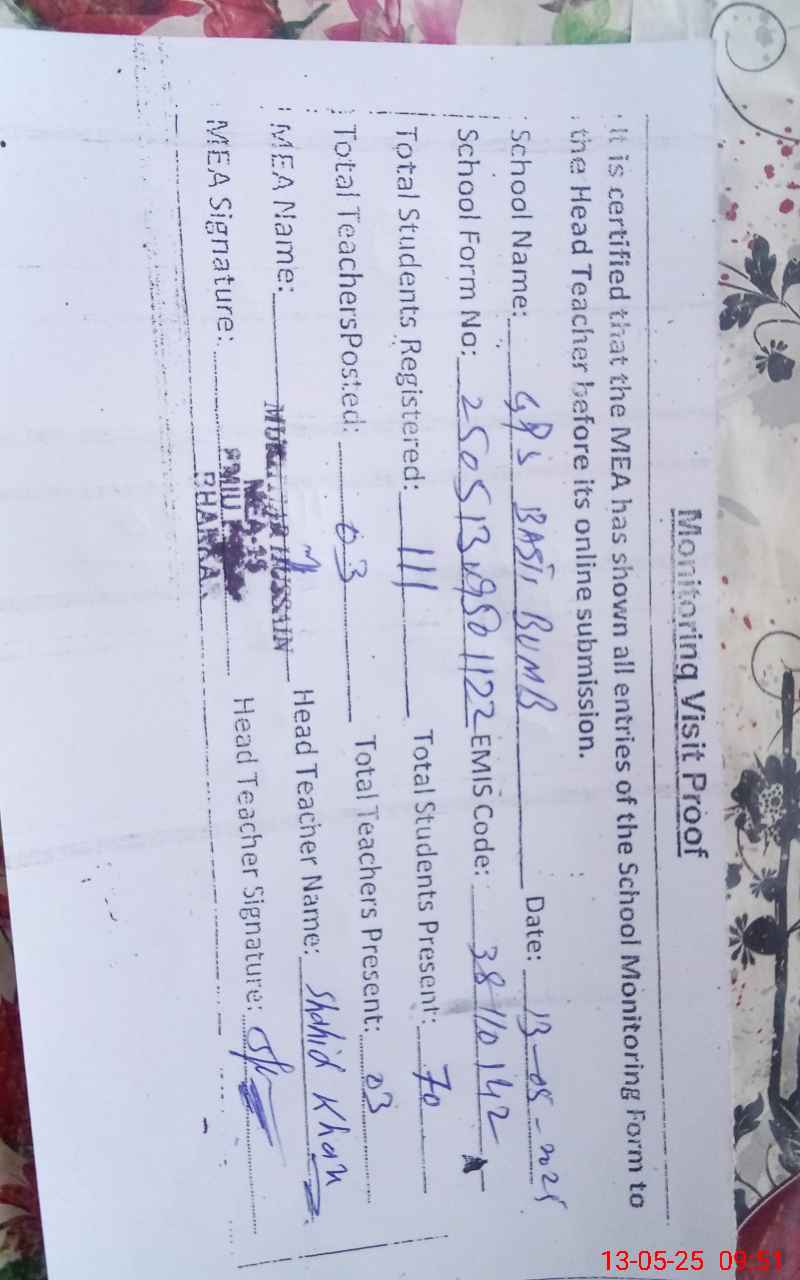 Monitoring Visit Proof
It is certified that the MEA has shown all entries of the School Monitoring Form to
the Head Teacher before its online submission.
School Name: GPS BASTI BUMB Date: 13-05-2025
School Form No: EMIS Code: 38110142
Total Students Registered: 111 Total Students Present: 70
Total TeachersPosted: 03 Total Teachers Present: 03
MEA Name: HUSSAIN Head Teacher Name: Shahid Khan
MEA-15
MEA Signature: Head Teacher Signature:
13-05-25 09:51